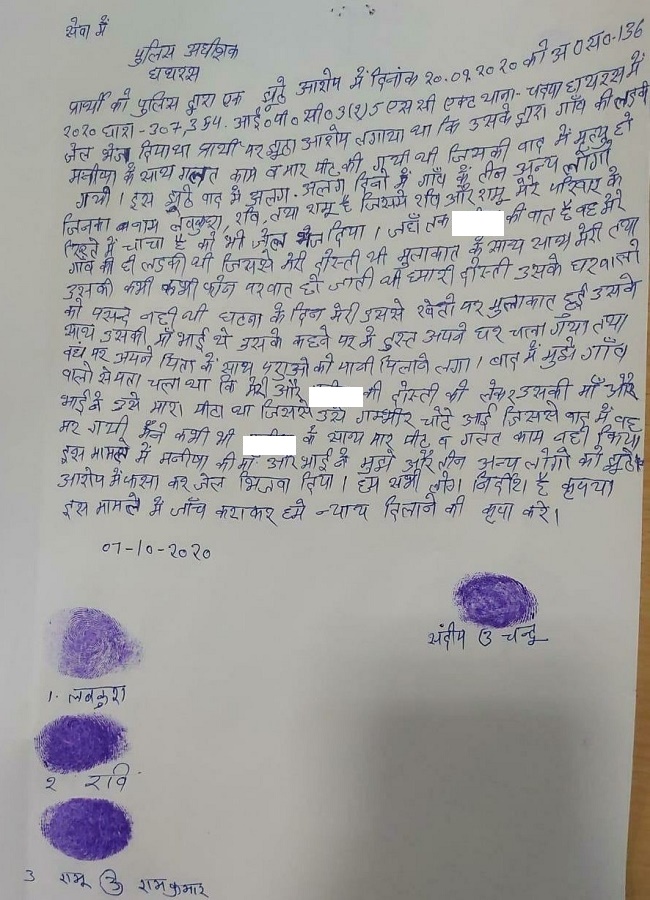 सेवा में
पुलिस अधीक्षक
हाथरस
प्रार्थी को पुलिस द्वारा एक झूठे आरोप में दिनांक 20.09.2020 को अ0स0-136
2020 धारा-307, 354. आई०पी०सी० 3(2)5 एस सी एक्ट थाना-चन्दपा हाथरस में
जेल भेज दिया था प्रार्थी पर झूठा आरोप लगाया था कि उसके द्वारा गाँव की लडकी
के साथ गलत काम व मार पीट की गयी थी जिसकी बाद में मृत्यु हो
गयी। इस झूठे वाद में अलग-अलग दिनों में गाँव के तीन अन्य लोगो
जिनका नाम लवकुश, रवि, तथा रामू है जिसमे रवि और रामू मेरे परिवार के
रिश्ते में चाचा है को भी जेल भेज दिया। जहाँ तक की बात है वह मेरे
गाँव की ही लडकी थी जिससे मेरी दोस्ती थी मुलाकात के साथ साथ मेरी तथा
उसकी कभी कभी फोन पर बात हो जाती थी हमारी दोस्ती उसके घरवालो
को पसन्द नही थी घटना के दिन मेरी उससे खेतो पर मुलाकात हुई उसके
साथ उसकी माँ भाई थे उसके कहने पर मे तुरन्त अपने घर चला गया तथा
वहां पर अपने पिता के साथ पशुओ को पानी पिलाने लगा। बाद में मुझे गाँव
वालो से पता चला था कि मेरी और की दोस्ती को लेकर उसकी माँ और
भाई ने उसे मारा पीटा था जिससे उसे गम्भीर चोटे आई जिससे बाद में वह
मर गयी मैंने कभी भी के साथ मार पीट व गलत काम नही किया
इस मामले में की माँ और भाई ने मुझे और तीन अन्य लोगो को झूठे
आरोप में फसा कर जेल भिजवा दिया। हम सभी लोग निर्दोष है कृपया
इस मामले में जाँच कराकर हमे न्याय दिलाने की कृपा करे।
07-10-2020
संदीप उ चन्दू
1. लवकुश
2 रवि
3 रामू उ रामकुमार